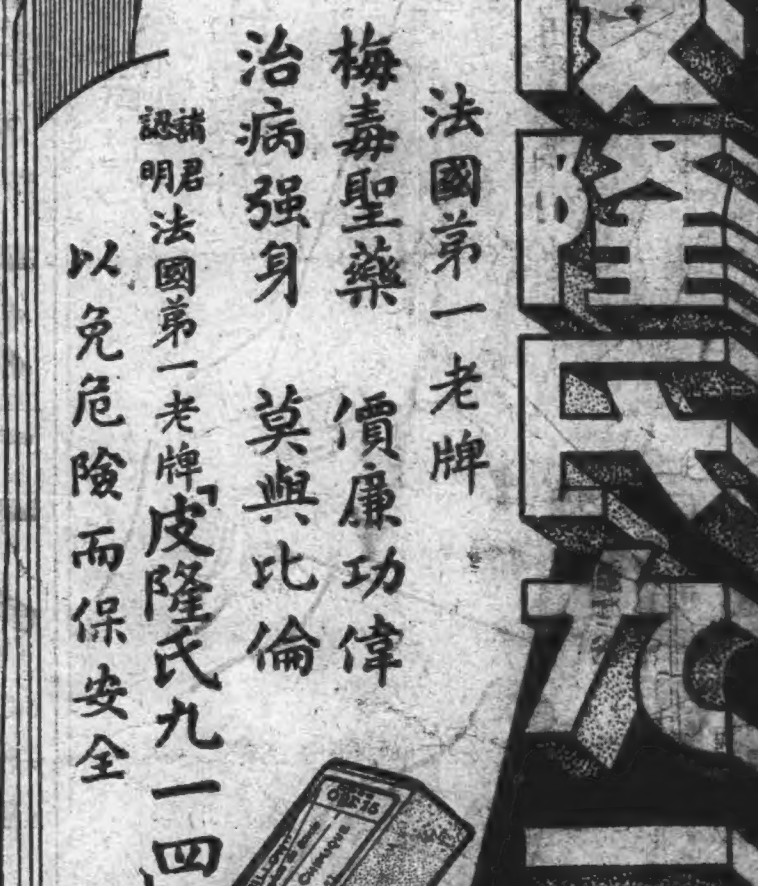 皮隆氏九一
法國第一老牌
梅毒聖藥　價廉功偉
治病强身　莫與比倫
諸君認明法國第一老牌「皮隆氏九一四」
以免危險而保安全